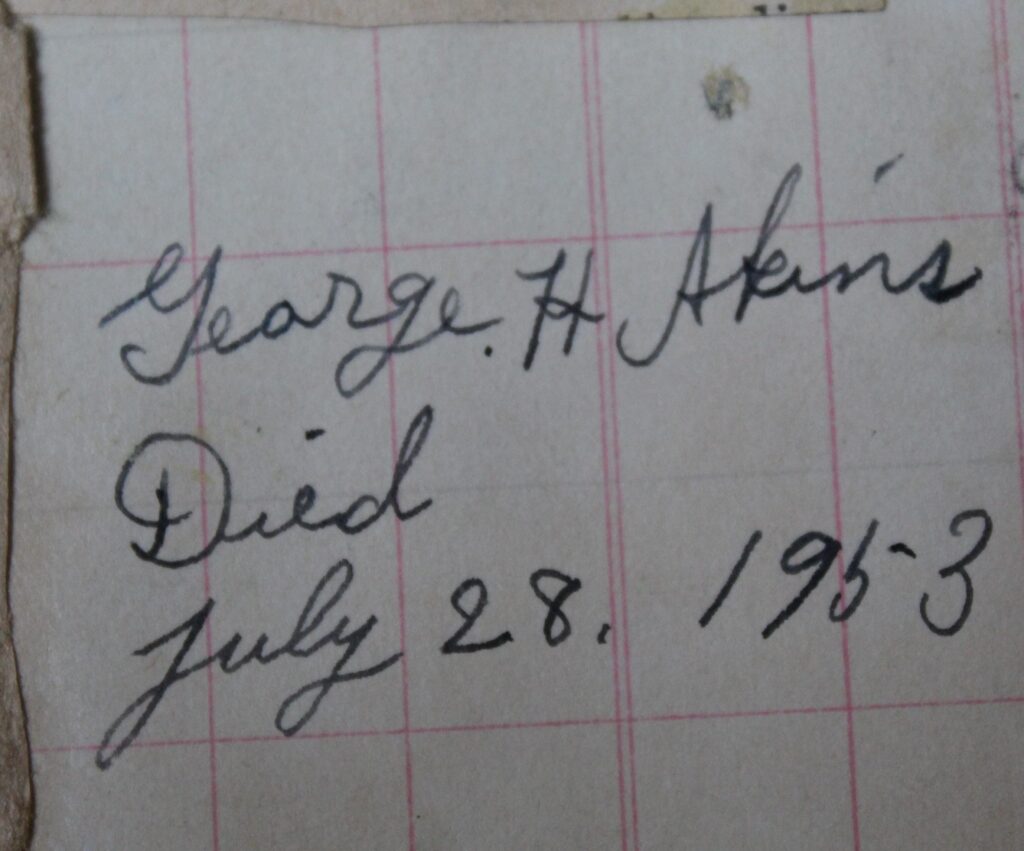 George. H Akins
Died
July 28. 1953